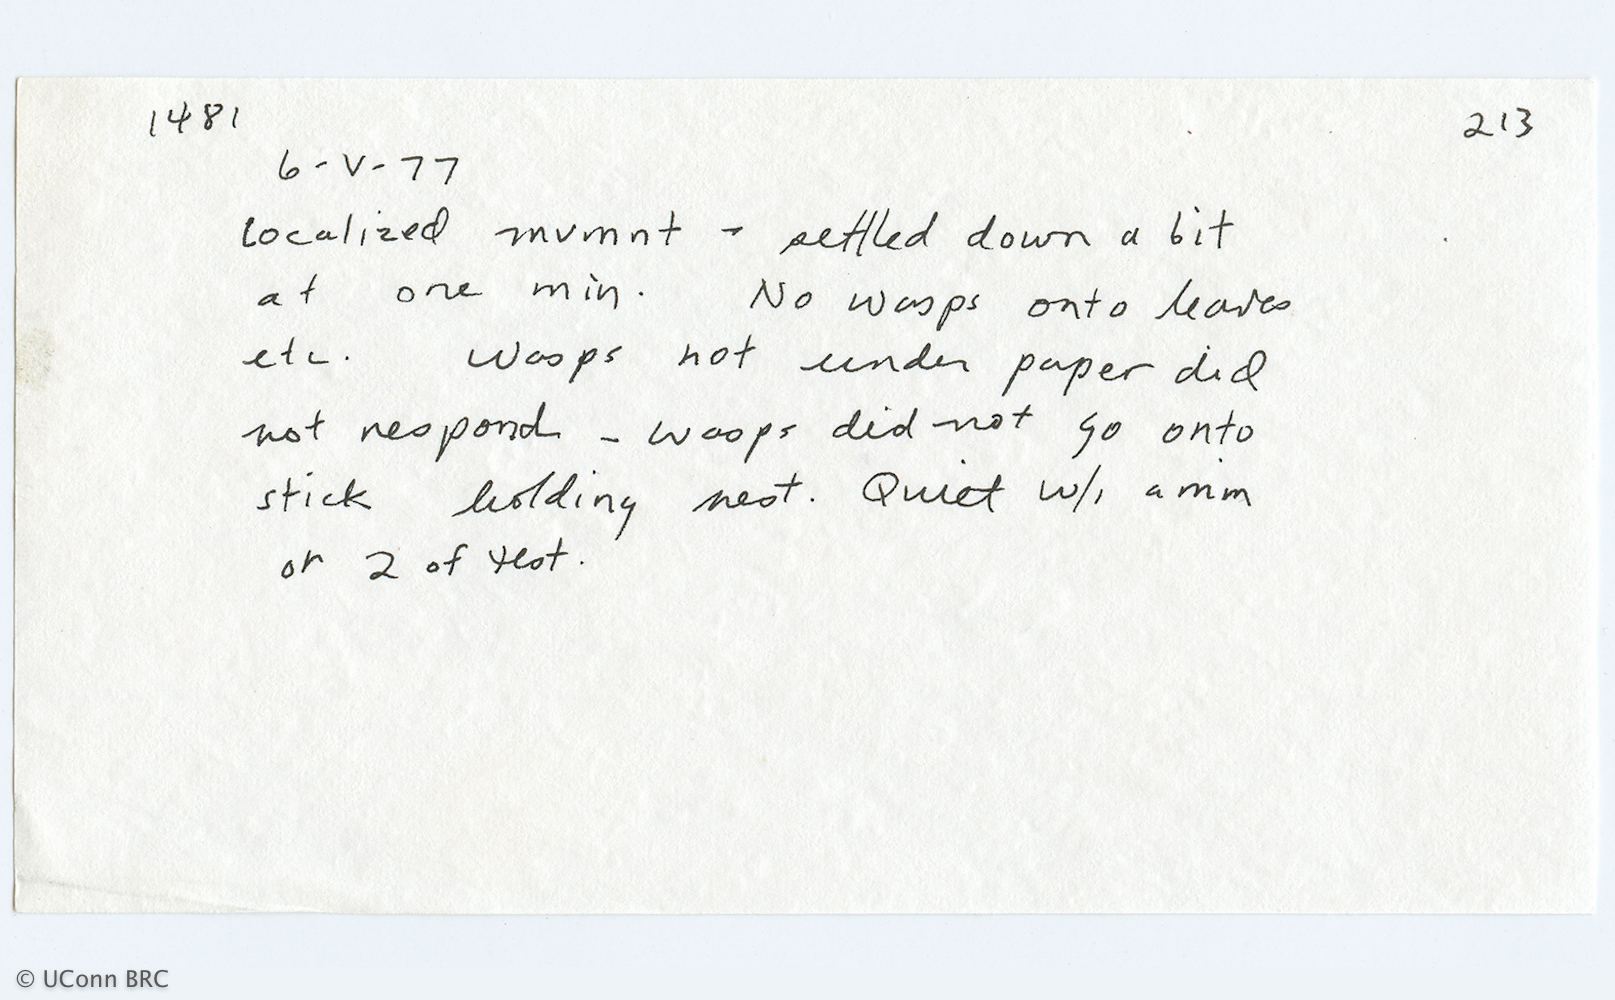 1481 213
6-V-77
localized mvmnt - settled down a bit
at one min. No wasps onto leaves
etc. Wasps not under paper did
not respond - wasps did not go onto
stick holding nest. Quiet w/i a min
or 2 of test.
© UConn BRC